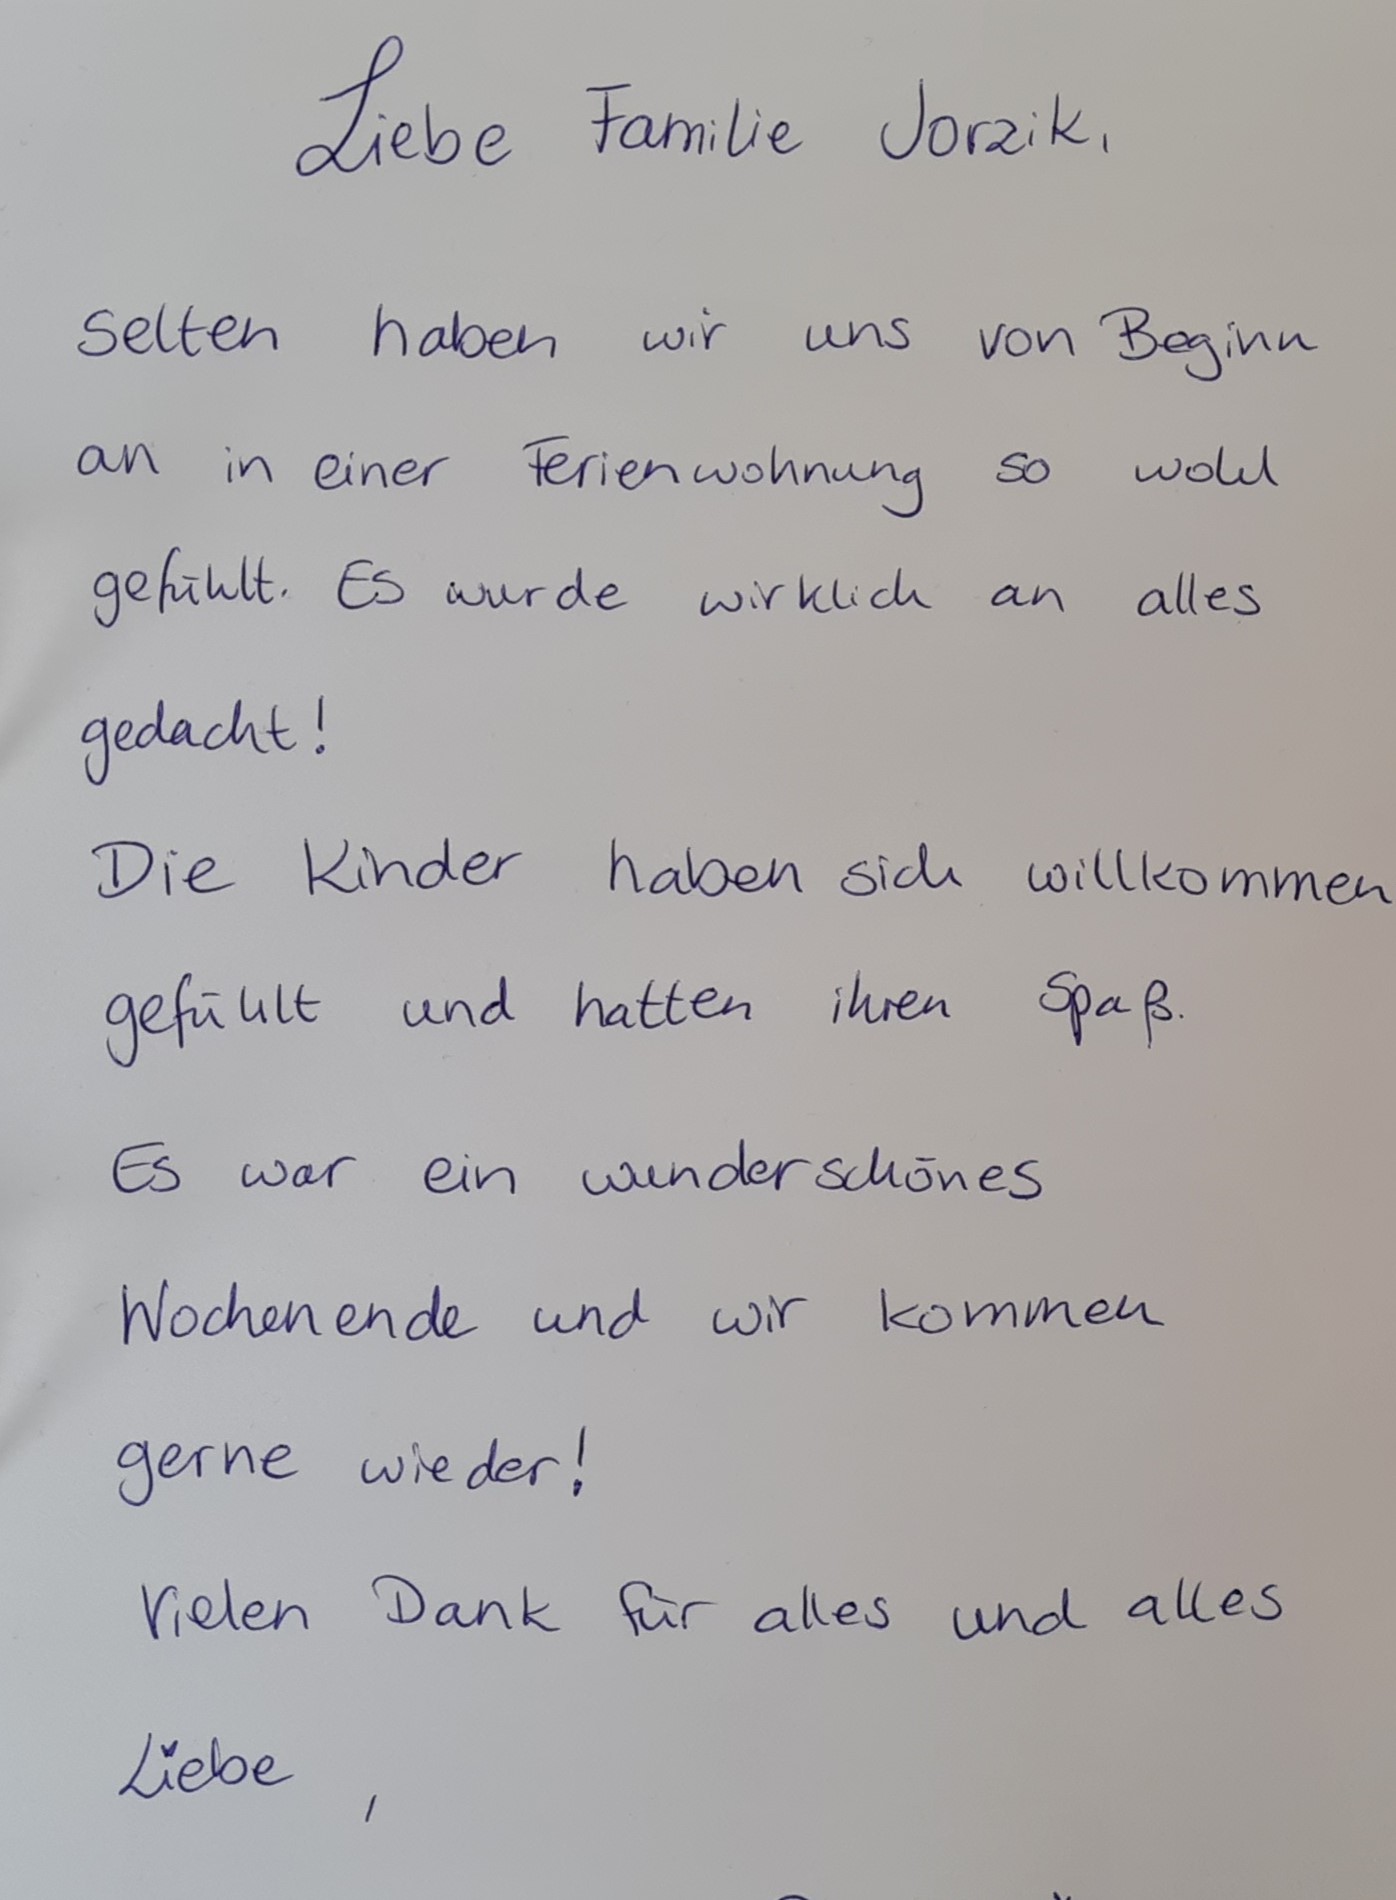 Liebe Familie Jorzik,
selten haben wir uns von Beginn
an in einer Ferienwohnung so wohl
gefühlt. Es wurde wirklich an alles
gedacht!
Die Kinder haben sich willkommen
gefühlt und hatten ihren Spaß.
Es war ein wunderschönes
Wochenende und wir kommen
gerne wieder!
Vielen Dank für alles und alles
Liebe,